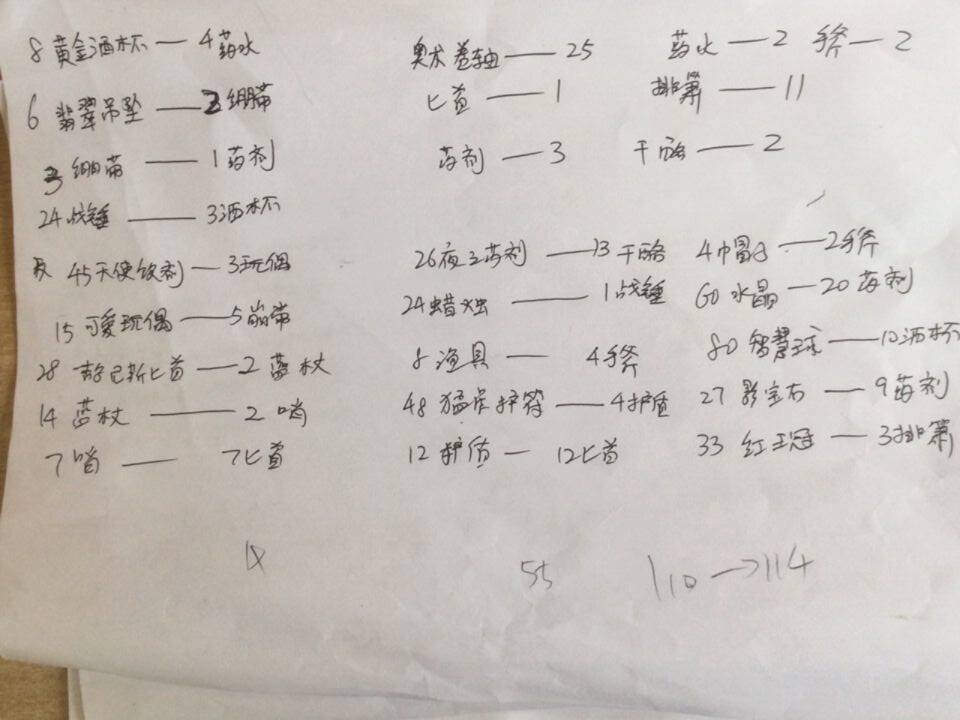 8 黄金酒杯 — 4 药水 奥术卷轴 — 25 药水 — 2 手斧 — 2
6 翡翠吊坠 — 3 绷带 匕首 — 1 排箫 — 11
3 绷带 — 1 药剂 药剂 — 3 干酪 — 2
24 战锤 — 3 酒杯
45 天使饮剂 — 3 玩偶 26 夜之药剂 — 13 干酪 4 帽子 — 2 手斧
15 可爱玩偶 — 5 崩带 24 蜡烛 — 1 战锤 60 水晶 — 20 药剂
28 赫尼斯匕首 — 2 蓝杖 8 渔具 — 4 手斧 80 智慧球 — 10 酒杯
14 蓝杖 — 2 哨 48 猛虎护符 — 4 护盾 27 影宝石 — 9 药剂
7 哨 — 7 匕首 12 护盾 — 12 匕首 33 红王冠 — 3 排箫
55 110 → 114